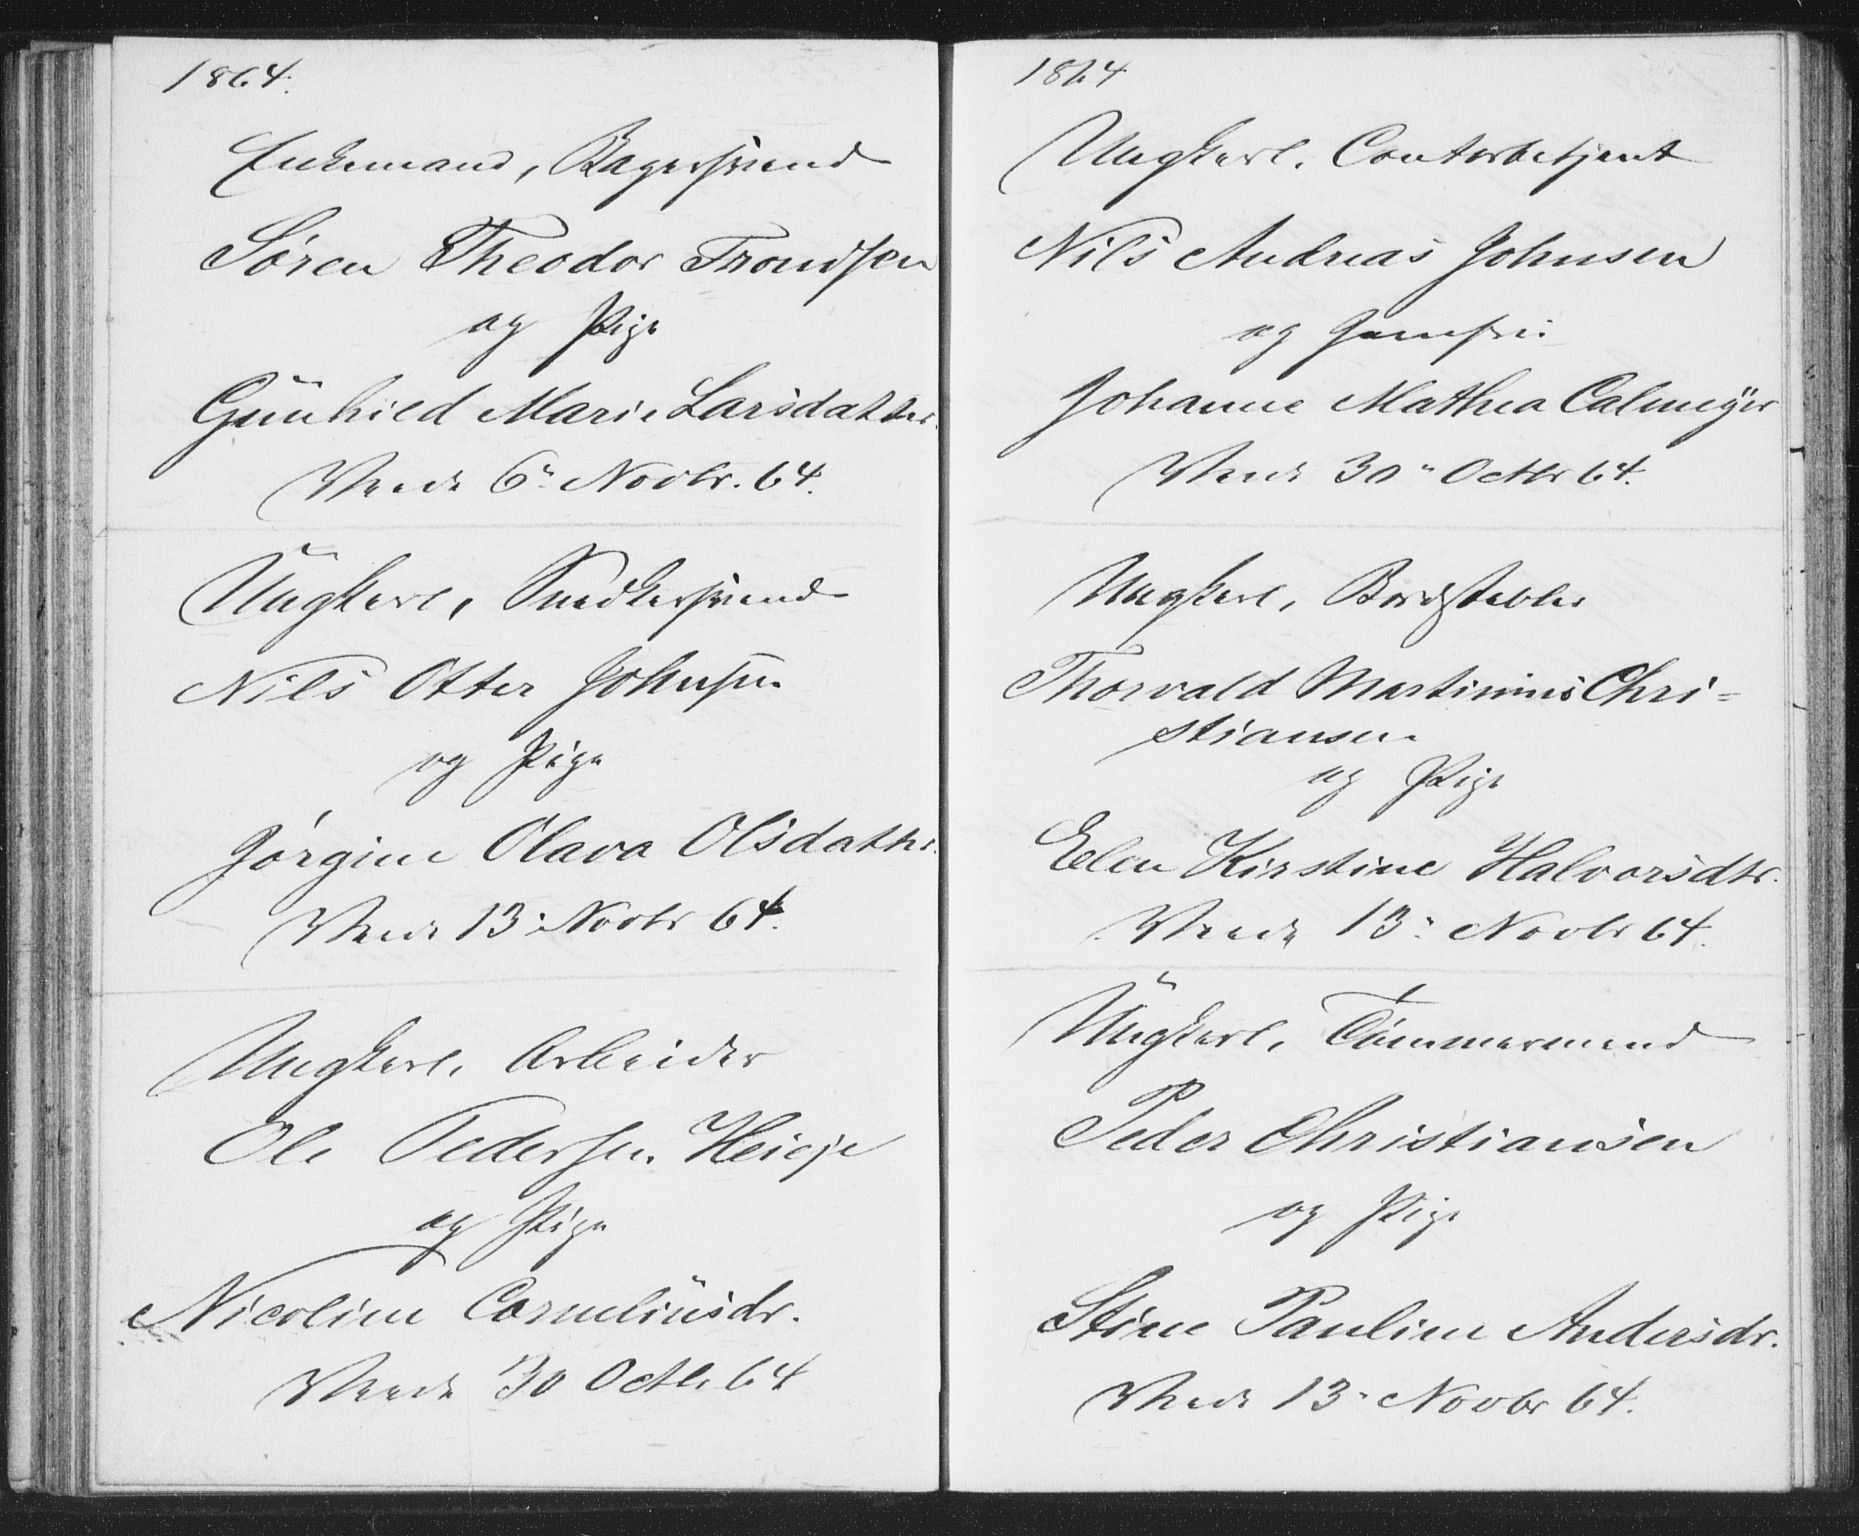 1864.
Enkemand, Bagersvend
Søren Theodor Trondsen
og Pige
Gunhild Marie Larsdatter.
Viede 6" Novbr. 64.
Ungkarl, Snedkersvend
Nils Otter Johnsen
og Pige
Jørgine Olava Olsdatter.
Viede 13" Novbr 64.
Ungkarl, Arbeider
Ole Pedersen Heieje
og Pige
Nicoline Corneliusdr.
Viede 30 Octb. 64
1864
Ungkarl. Contorbetjent
Nils Andreas Johnsen
og Jomfru
Johanne Mathea Calmeÿer
Viede 30" Octbr 64.
Ungkarl, Bordstabler
Thorvald Martinius Chri=
stiansen
og Pige
Elen Kirstine Halvorsdtr.
Viede 13" Novbr 64.
Ungkarl, Tømmermand
Peder Christiansen
og Pige
Stine Pauline Andersdr.
Viede 13" Novbr 64.